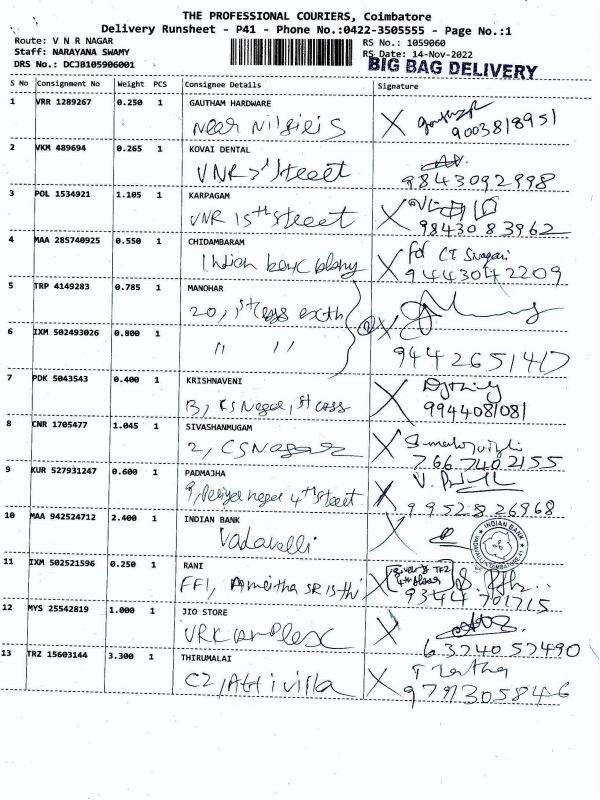 THE PROFESSIONAL COURIERS, Coimbatore
Delivery Runsheet - P41 - Phone No.:0422-3505555 - Page No.:1
Route: V N R NAGAR RS No.: 1059060
Staff: NARAYANA SWAMY RS Date: 14-Nov-2022
DRS No.: DCJB105906001 BIG BAG DELIVERY
S No Consignment No Weight PCS Consignee Details Signature
1 VRR 1289267 0.250 1 GAUTHAM HARDWARE
Near Nilgieis X 9003818951
2 VKM 489694 0.265 1 KOVAI DENTAL
VNR 3rd Street 9843092998
3 POL 1534921 1.105 1 KARPAGAM
VNR 15th Street X 9843083962
4 MAA 285740925 0.550 1 CHIDAMBARAM
Indian bank colony X 9443042209
5 TRP 4149283 0.785 1 MANOHAR
20, 1st cross exth X
6 IXM 502493026 0.800 1
" " 9442651417
7 PDK 5043543 0.400 1 KRISHNAVENI
13, KS Nagar, 1st cross X 9944081081
8 CNR 1705477 1.045 1 SIVASHANMUGAM
2, CS Nagar X 7667402155
9 KUR 527931247 0.600 1 PADMAJHA
9, Periya nagar 4th street X 9952826968
10 MAA 942524712 2.400 1 INDIAN BANK
Vadavalli X INDIAN BANK
11 IXM 502521596 0.250 1 RANI
FF1, Amritha SR 15th X 9344701715
12 MYS 25542819 1.000 1 JIO STORE
VRR complex X 6374057490
13 TRZ 15603144 3.300 1 THIRUMALAI
C2, Atti villa X 9791305846